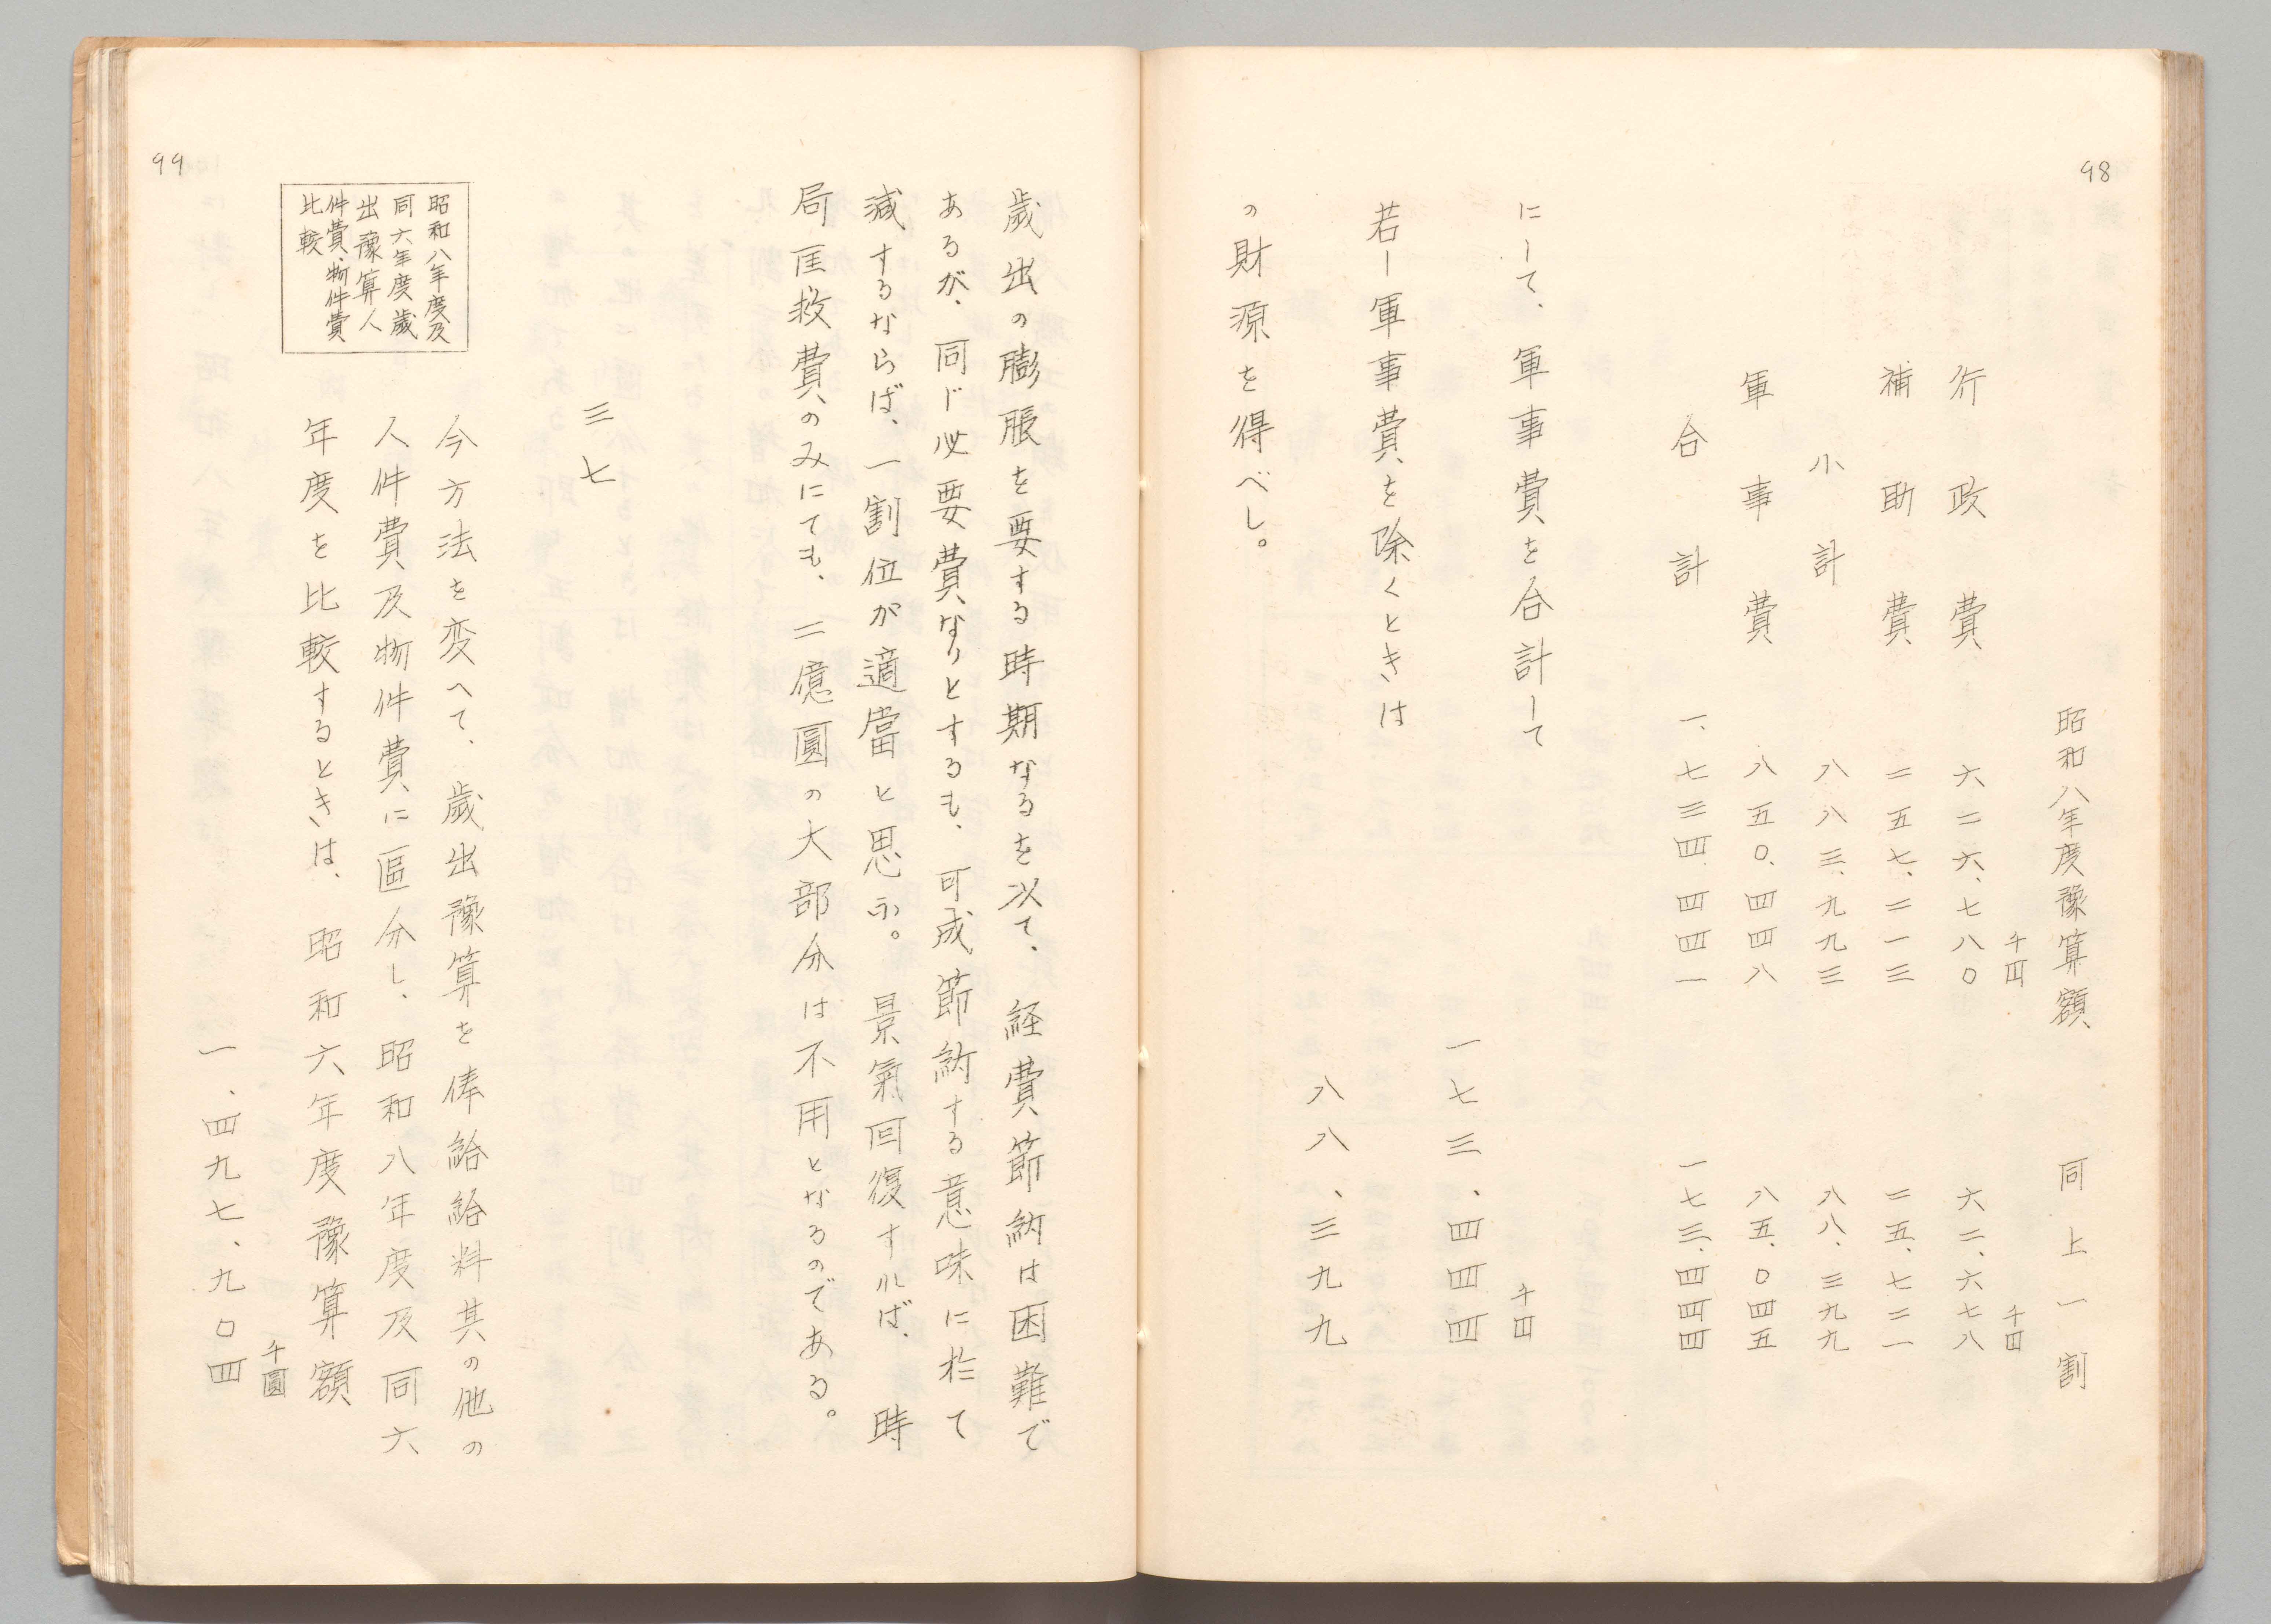 98
昭和八年度豫算額　同上一割
千円　千円
行政費　六二六、七八〇　六二、六七八
補助費　二五七、二一三　二五、七二一
小計　八八三、九九三　八八、三九九
軍事費　八五〇、四四八　八五、〇四五
合計　一、七三四、四四一　一七三、四四四
にして、軍事費を合計して
千円
一七三、四四四
若し軍事費を除くときは
八八、三九九
の財源を得べし。
99
歲出の膨脹を要する時期なるを以て、経費節約は困難で
あるが、同じ必要費なりとするも、可成節約する意味に於て
減するならば、一割位が適當と思ふ。景氣囘復すれば、時
局匡救費のみにても、二億圓の大部分は不用となるのである。
三七
昭和八年度及
同六年度歲
出豫算人
件費、物件費
比較
今方法を変へて、歲出豫算を俸給給料其の他の
人件費及物件費に區分し、昭和八年度及同六
年度を比較するときは、昭和六年度豫算額
千圓
一、四九七、九〇四